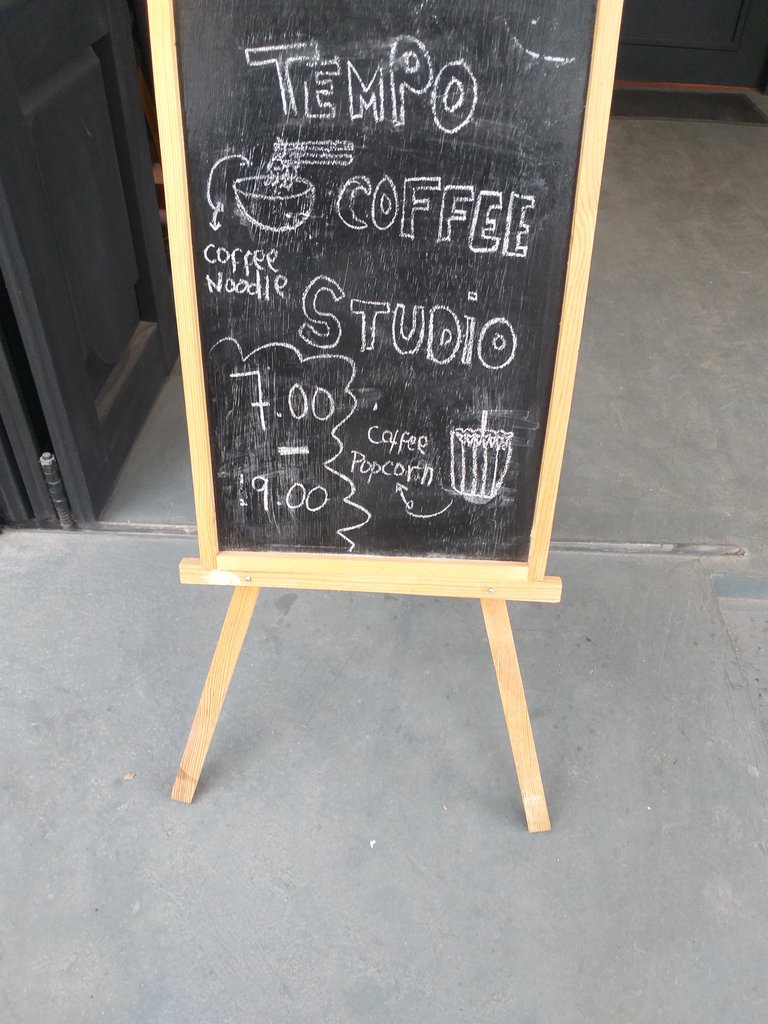 TEMPO
COFFEE
coffee
Noodle
STUDiO
7.00
-
19.00
Coffee
Popcorn